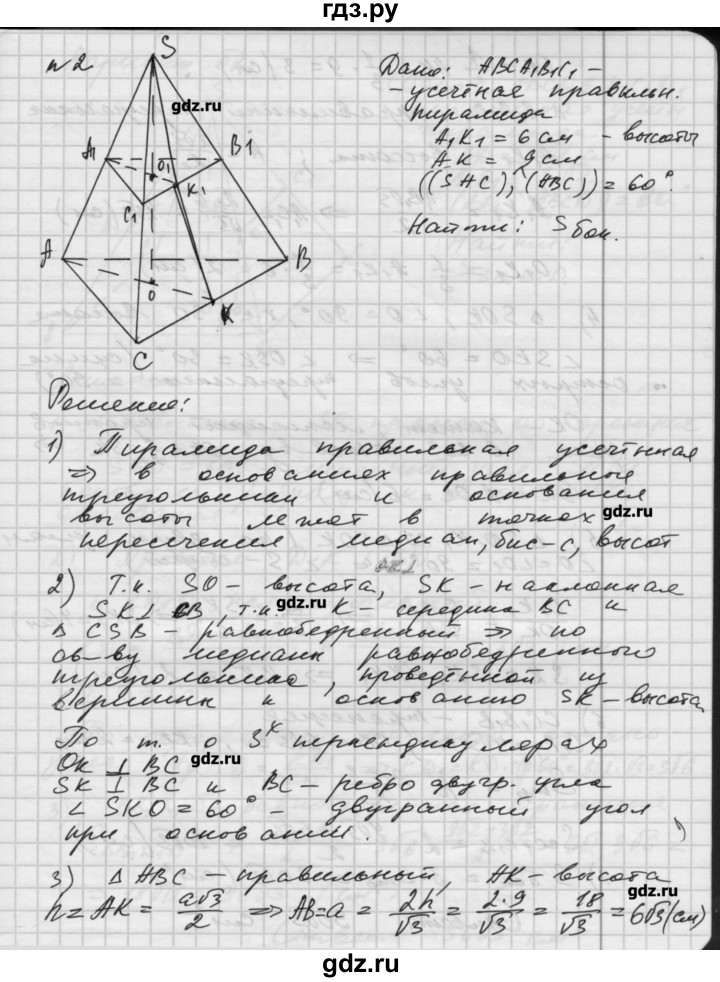 гдз.ру
n2
S
gdz.ru
A1
B1
O1
K1
C1
A
B
O
K
C
Дано: ABCA₁B₁C₁ –
- усечтная правильн.
пирамида
A₁K₁ = 6 см – высоты
AK = 9 см
((SAC), (ABC)) = 60°.
Найти: Sбок.
Решение:
1) Пирамида правильная усечтнная
⇒ в основаниях правильные
треугольники и основания
высоты лежат в точках gdz.ru
пересечения медиан, бис-с, высот
2) Т.к. SO – высота, SK – наклонная
SK⊥CB, т.к. gdz.ru K – середина BC и
∆ CSB – равнобедренный ⇒ по
св-ву медианы равнобедренного
треугольника, проведтнной из
вершины к основанию SK – высота
По т. о 3х перпендикулярах
OK ⊥ BC gdz.ru
SK ⊥ BC и BC – ребро двугр. угла
∠ SKO = 60° – двугранный угол
при основании.
3) ∆ ABC – правильный, AK – высота
h = AK = a√3/2 ⇒ AB = a = 2h/√3 = 2·9/√3 = 18/√3 = 6√3 (см)
gdz.ru
gdz.ru